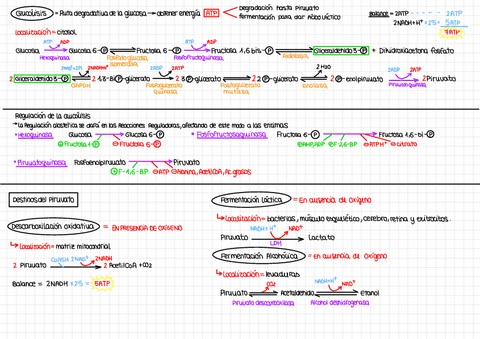 Glucólisis = Ruta degradativa de la glucosa → obtener energía ATP
degradación hasta Piruvato
fermentación para dar ácido láctico
Balance = 2ATP --- 2ATP
2NADH+H⁺ × 2'5 = 5ATP
7ATP
Localización = citosol
ATP ADP ATP ADP
Glucosa Glucosa 6-P Fructosa 6-P Fructosa 1,6 bis-P Gliceraldehido 3-P + Dihidroxiacetona fosfato
Hexoquinasa Fosfoglucosa isomerasa Fosfofructoquinasa Aldolasa
2NAD⁺ 2NADH+H⁺ 2ADP 2ATP 2 H₂O 2ADP 2ATP
2 Gliceraldehido 3-P 2 1,3-Bi-P-glicerato 2 3-P-glicerato 2 2-P-glicerato 2 P-enolpiruvato 2 Piruvato
GAPDH Fosfoglicerato quinasa Fosfoglicerato mutasa Enolasa Piruvatoquinasa
Regulación de la Glucólisis
La Regulación alostérica se da en las Reacciones Reguladoras, afectando de este modo a las enzimas
• Hexoquinasa Glucosa Glucosa 6-P • Fosfofructoquinasa Fructosa 6-P Fructosa 1,6-bi-P
Fructosa 1-P Fructosa 6-P AMP/ADP F-2,6-BP ATP H⁺ citrato
• Piruvatoquinasa Fosfoenolpiruvato Piruvato
F-1,6-BP ATP Alanina, AcetilCoA, Ac.grasos
Destinos del Piruvato
Descarboxilación oxidativa = EN PRESENCIA DE OXÍGENO
Localización = matriz mitocondrial
CoASH 2NAD⁺ 2NADH
2 Piruvato 2 AcetilCoA + CO₂
Balance = 2NADH × 2'5 = 5ATP
Fermentación Láctica = En ausencia de Oxígeno
Localización = bacterias, músculo esquelético, cerebro, retina y eritrocitos.
NADH+H⁺ NAD⁺
Piruvato Lactato
LDH
Fermentación Alcohólica = en ausencia de Oxígeno
Localización = levaduras
CO₂ NADH+H⁺ NAD⁺
Piruvato Acetaldehido Etanol
Piruvato descarboxilasa Alcohol deshidrogenasa